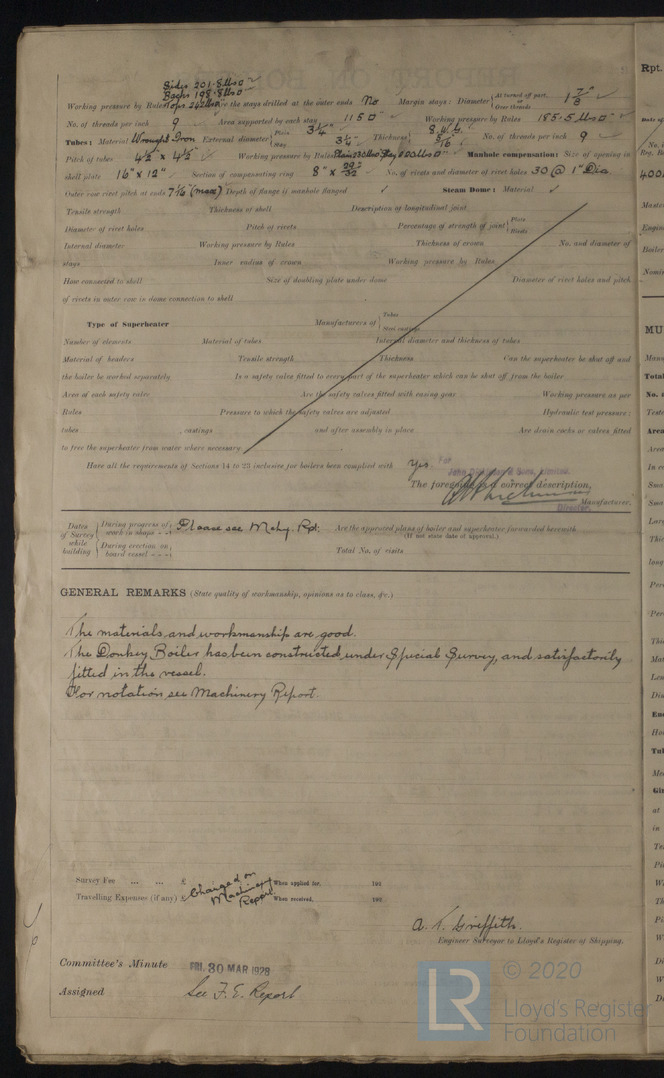 Sides 201.8 lbs □"
Backs 198.8 lbs □"
Working pressure by Rules Tops 242 lbs Are the stays drilled at the outer ends No Margin stays: Diameter { At turned off part, or Over threads 1 7/8"
No. of threads per inch 9 Area supported by each stay 115 □" Working pressure by Rules 185.5 lbs □"
Tubes: Material Wrought Iron External diameter { Plain 3 1/4" Stay 3 1/4" Thickness { 8 W.G. 5/16" No. of threads per inch 9
Pitch of tubes 4 1/2" x 4 1/2" Working pressure by Rules Manhole compensation: Size of opening in
shell plate 16" x 12" Section of compensating ring 8" x 29/32" No. of rivets and diameter of rivet holes 30 @ 1" Dia
Outer row rivet pitch at ends 7 1/16" (max) Depth of flange if manhole flanged Steam Dome: Material
Tensile strength Thickness of shell Description of longitudinal joint
Diameter of rivet holes Pitch of rivets Percentage of strength of joint { Plate Rivets
Internal diameter Working pressure by Rules Thickness of crown No. and diameter of
stays Inner radius of crown Working pressure by Rules
How connected to shell Size of doubling plate under dome Diameter of rivet holes and pitch
of rivets in outer row in dome connection to shell
Type of Superheater Manufacturers of { Tubes Steel castings
Number of elements Material of tubes Internal diameter and thickness of tubes
Material of headers Tensile strength Thickness Can the superheater be shut off and
the boiler be worked separately Is a safety valve fitted to every part of the superheater which can be shut off from the boiler
Area of each safety valve Are the safety valves fitted with easing gear Working pressure as per
Rules Pressure to which the safety valves are adjusted Hydraulic test pressure:
tubes castings and after assembly in place Are drain cocks or valves fitted
to free the superheater from water where necessary
Have all the requirements of Sections 14 to 23 inclusive for boilers been complied with Yes.
For
John Dickinson & Sons, Limited.
The foregoing is a correct description,
Manufacturer.
Director.
Dates of Survey while building { During progress of work in shops - - Please see Mchy Rpt: Are the approved plans of boiler and superheater forwarded herewith
(If not state date of approval.)
During erection on board vessel - - - Total No. of visits
GENERAL REMARKS (State quality of workmanship, opinions as to class, &c.)
The materials and workmanship are good.
The Donkey Boiler has been constructed under Special Survey, and satisfactorily
fitted in the vessel.
For notation see Machinery Report.
Survey Fee ... ... £ Charged on When applied for, 192
Travelling Expenses (if any) £ Machinery Report When received, 192
A. T. Griffith.
Engineer Surveyor to Lloyd's Register of Shipping.
Committee's Minute FRI. 30 MAR 1928
Assigned See F. E. Report
LR © 2020
Lloyd's Register
Foundation
Rpt.